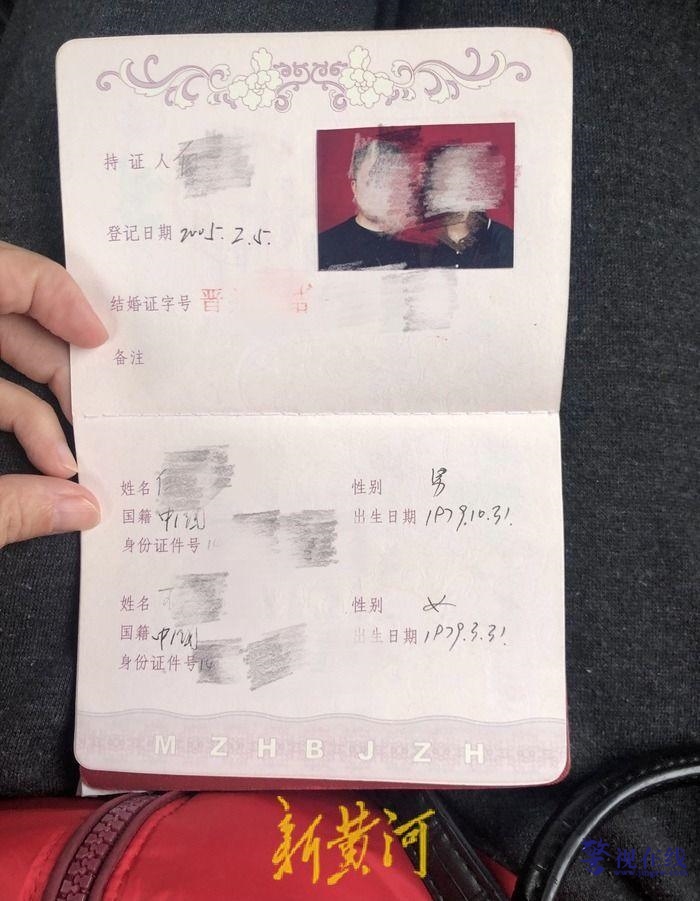 持证人
登记日期 2005.2.5.
结婚证字号 晋 结
备注
姓名
性别 男
国籍 中国
出生日期 1979.10.31.
身份证件号 14
姓名
性别 女
国籍 中国
出生日期 1979.3.31.
身份证件号 14
MZHBJZH
新黄河
警视在线